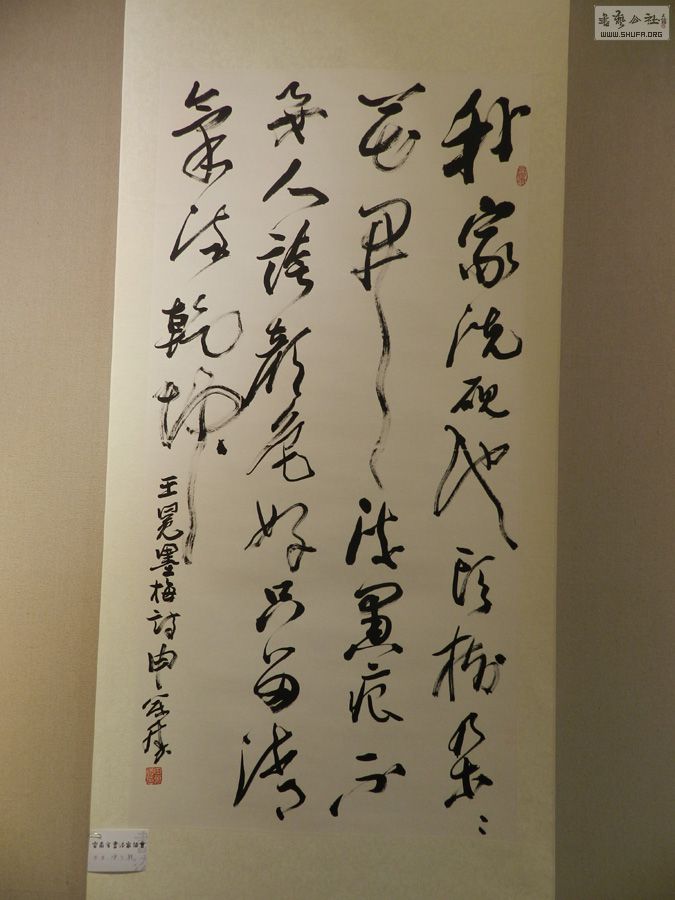 我家洗硯池頭樹朵〻
花開淡墨痕不
要人誇顏色好只留清
氣滿乾坤
王冕墨梅詩
書藝公社
WWW.SHUFA.ORG